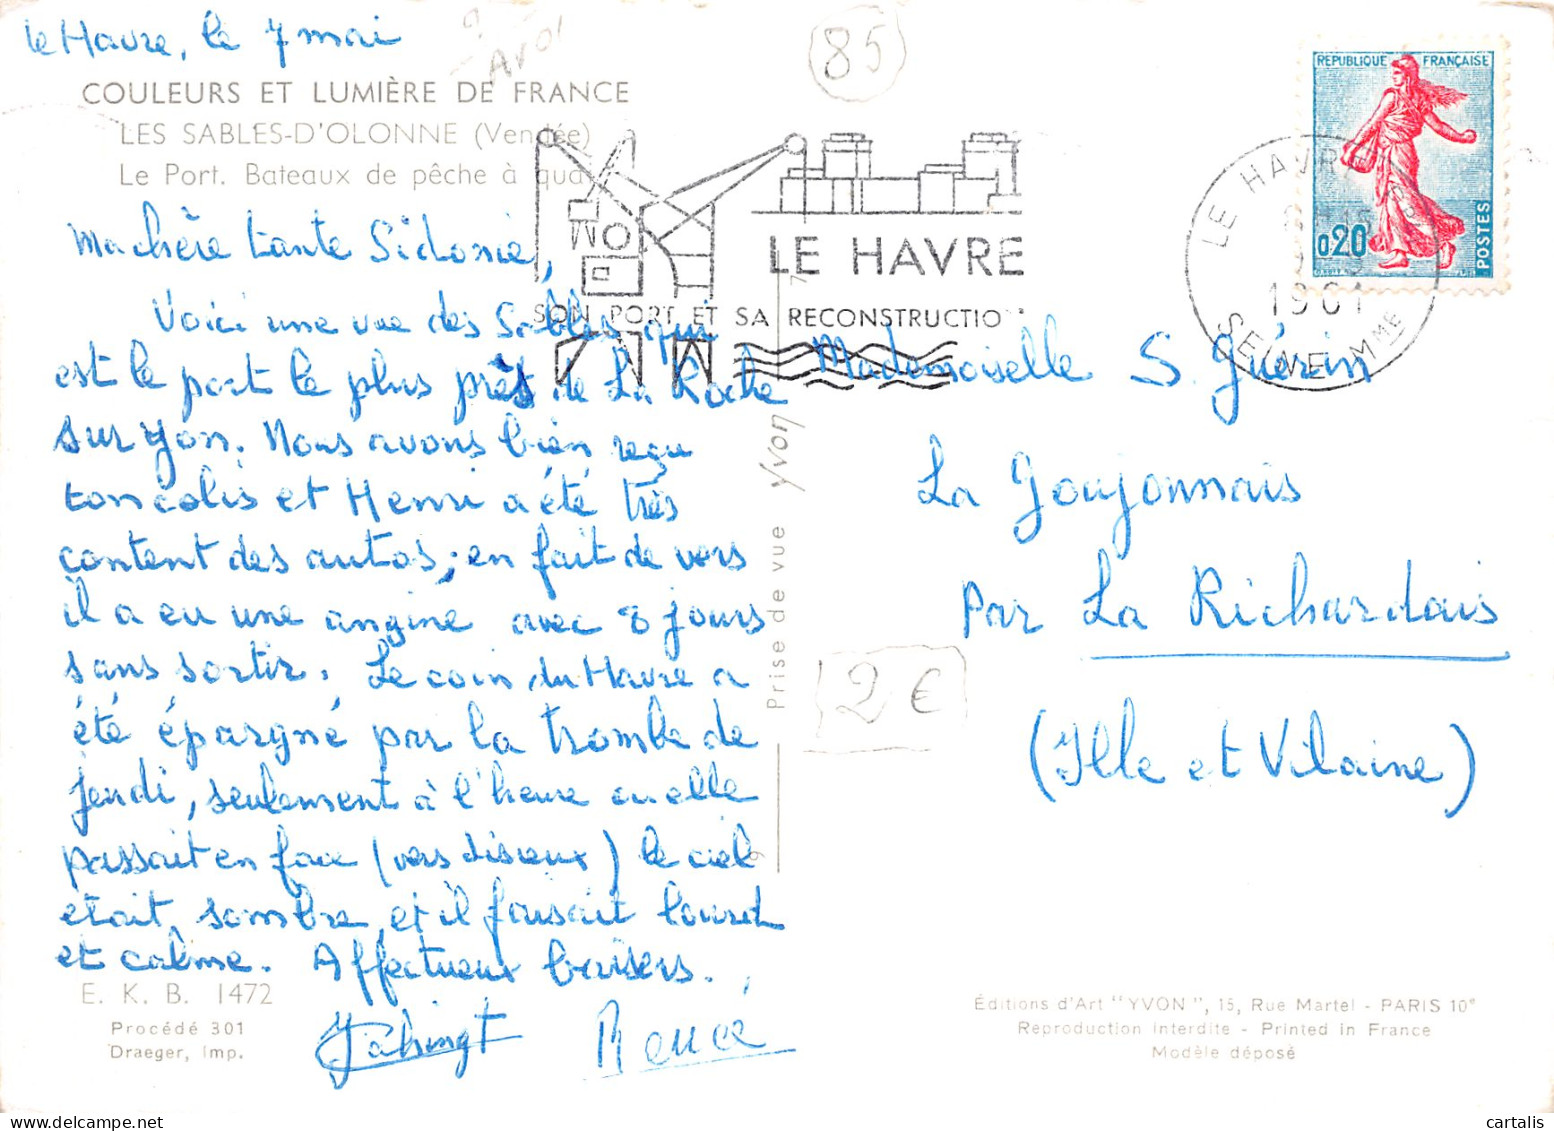 le Havre, le 7 mai
85
COULEURS ET LUMIÈRE DE FRANCE
LES SABLES-D'OLONNE (Vendée)
Le Port. Bateaux de pêche à quai
Ma chère tante Sidonie,
Voici une vue des Sables qui
est le port le plus près de La Roche
sur yon. Nous avons bien reçu
ton colis et Henri a été très
content des autos; en fait de vers
il a eu une angine avec 8 jours
sans sortir. Le coin du Havre a
été épargné par la trombe de
jeudi, seulement à l'heure où elle
passait en face (vers Lisieux) le ciel
était sombre et il faisait lourd
et calme. Affectueux baisers.
Renée
E. K. B. 1472
Procédé 301
Draeger, Imp.
LE HAVRE
SON PORT ET SA RECONSTRUCTIO
Prise de vue Yvon
REPUBLIQUE FRANÇAISE
0,20
POSTES
LE HAVRE
1961
SEINE Mme
Mademoiselle S. Guérin
La Goujonnais
par La Richardais
(Ille et Vilaine)
2 €
Éditions d'Art "YVON", 15, Rue Martel - PARIS 10e
Reproduction Interdite - Printed in France
Modèle déposé
cartalis